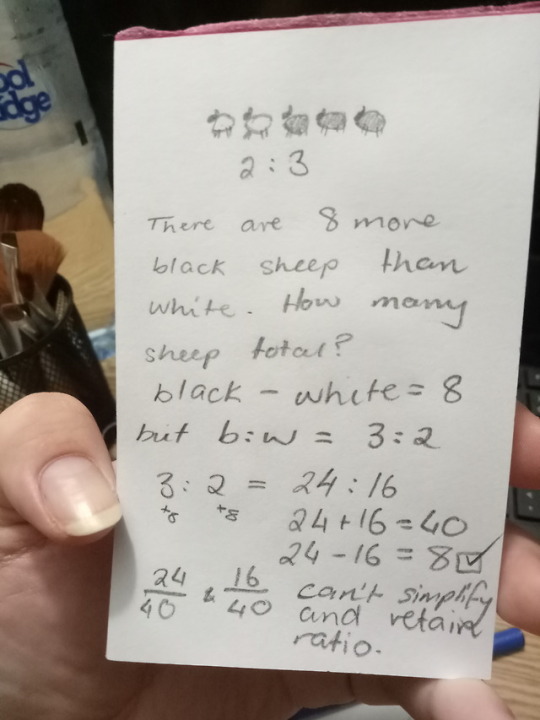 2:3
There are 8 more
black sheep than
white. How many
sheep total?
black - white = 8
but b:w = 3:2
3:2 = 24:16
24+16=40
24-16 = 8☑
24/40 & 16/40 can't simplify
and retain
ratio.